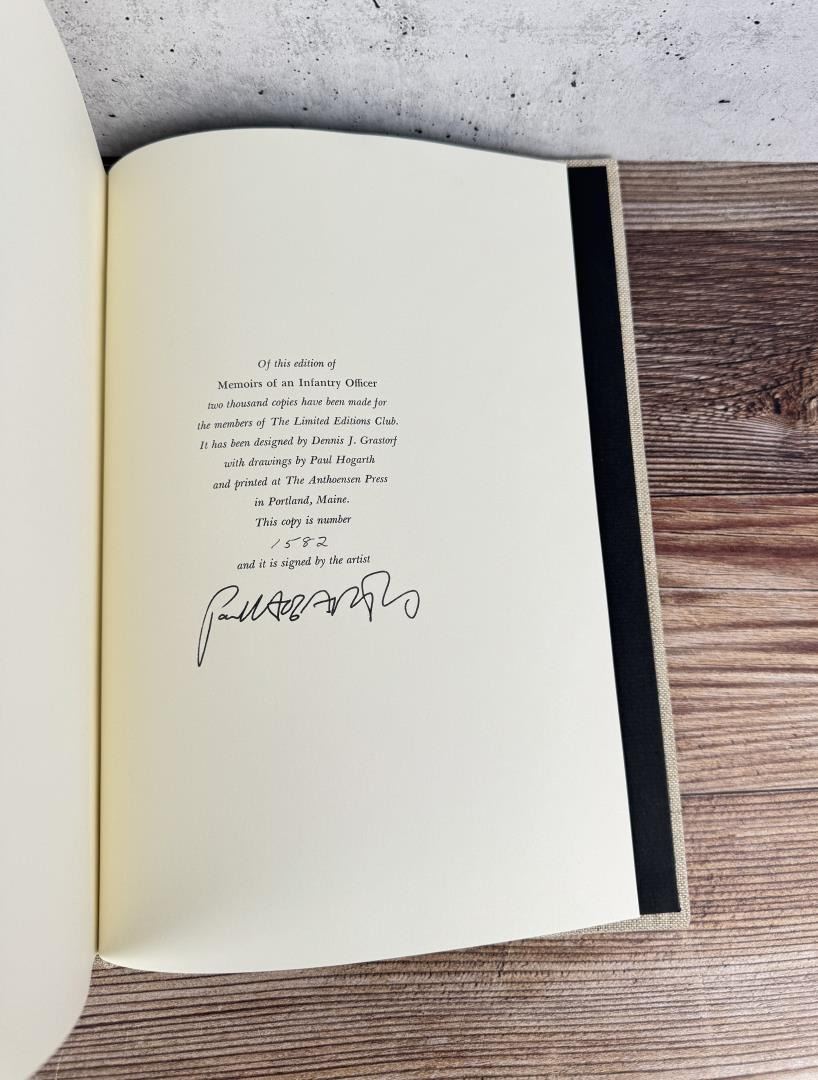 Of this edition of
Memoirs of an Infantry Officer
two thousand copies have been made for
the members of The Limited Editions Club.
It has been designed by Dennis J. Grastorf
with drawings by Paul Hogarth
and printed at The Anthoensen Press
in Portland, Maine.
This copy is number
1582
and it is signed by the artist
Paul Hogarth